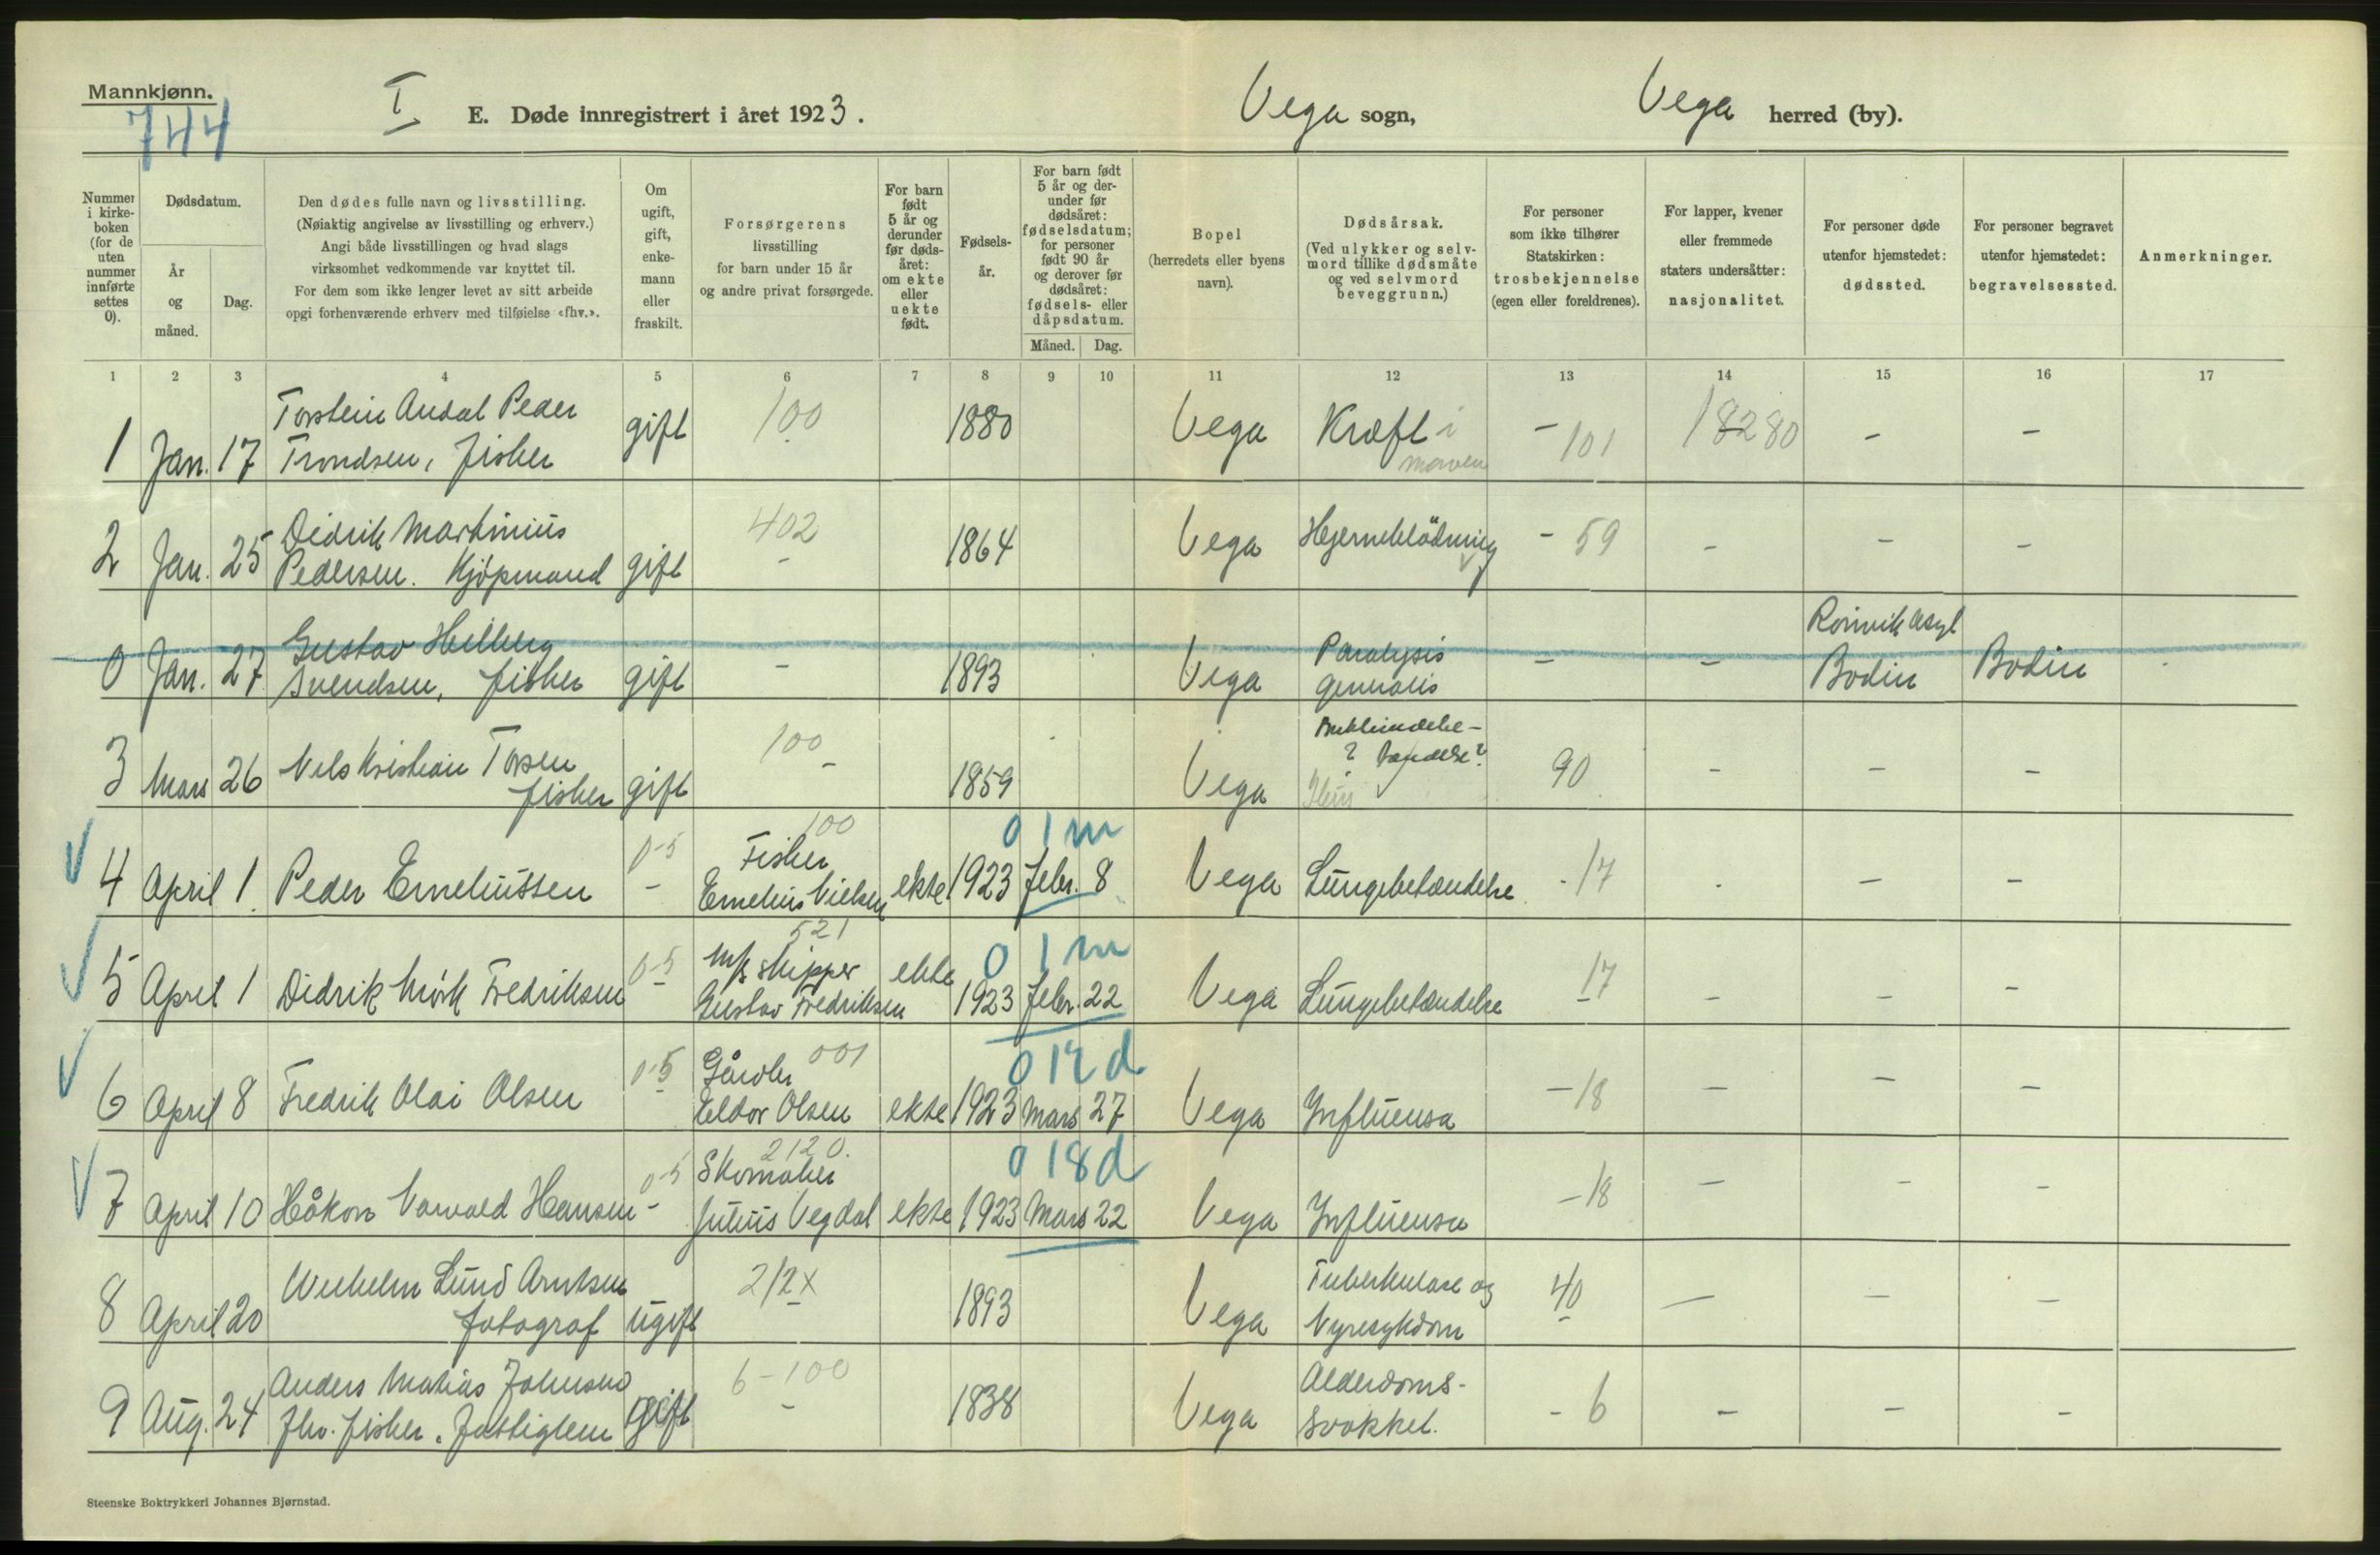 Mannkjønn.
744
I
E. Døde innregistrert i året 1923.
Vega sogn,
Vega herred (by).
Nummer i kirkeboken (for de uten nummer innførte settes 0).
Dødsdatum.
År og måned.
Dag.
Den dødes fulle navn og livsstilling.
(Nøiaktig angivelse av livsstilling og erhverv.)
Angi både livsstillingen og hvad slags
virksomhet vedkommende var knyttet til.
For dem som ikke lenger levet av sitt arbeide
opgi forhenværende erhverv med tilføielse «fhv.».
Om ugift, gift, enkemann eller fraskilt.
Forsørgerens
livsstilling
for barn under 15 år
og andre privat forsørgede.
For barn født 5 år og derunder før dødsåret: om ekte eller uekte født.
Fødselsår.
For barn født 5 år og derunder før dødsåret: fødselsdatum; for personer født 90 år og derover før dødsåret: fødsels- eller dåpsdatum.
Måned.
Dag.
Bopel
(herredets eller byens
navn).
Dødsårsak.
(Ved ulykker og selvmord tillike dødsmåte og ved selvmord beveggrunn.)
For personer
som ikke tilhører
Statskirken:
trosbekjennelse
(egen eller foreldrenes).
For lapper, kvener
eller fremmede
staters undersåtter:
nasjonalitet.
For personer døde
utenfor hjemstedet:
dødssted.
For personer begravet
utenfor hjemstedet:
begravelsessted.
Anmerkninger.
1 2 3 4 5 6 7 8 9 10 11 12 13 14 15 16 17
1 Jan. 17 Torstein Andal Peder
Trondsen, fisker gift 100 1880 Vega Kræft i
maven - 101 18280 - -
2 Jan. 25 Didrik Martinius
Pedersen. Kjöpmand gift 402 - 1864 Vega Hjerneblödning - 59 - - -
0 Jan. 27 Gustav Helberg
Svendsen, fisker gift - 1893 Vega Paralysis
generalis - - Rönvik Asyl
Bodin Bodin
3 Mars 26 Nils Kristian Torsen
fisker gift 100 - 1859 Vega
? ?
90 - - -
4 April 1 Peder Erneliussen 0-5 - 100
Fisker
Ernelius Nielsen ekte 0 1 m
1923 Febr. 8 Vega Lungebetændelse - 17 - -
5 April 1 Didrik Mörk Fredriksen 0-5 - 521
M/k skipper
Gustav Fredriksen ekte 0 1 m
1923 Febr. 22 Vega Lungebetændelse 17 - - - -
6 April 8 Fredrik Olai Olsen 0-5 - Gårdbr 001
Eldor Olsen ekte 0 12 d
1923 Mars 27 Vega Influensa - 18 - - -
7 April 10 Håkon Vorvald Hansen 0-5 - 2120.
Skomaker
Julius Vegdal ekte 0 18 d
1923 Mars 22 Vega Influensa - 18 - - -
8 April 20 Wilhelm Lund Arntsen
fotograf ugift 212x 1893 Vega Tuberkulose og
Nyresykdom 40 - - - -
9 Aug. 24 Anders Matias Johnsen
Fhv. fisker. Fattiglem gift 6-100 - 1838 Vega Alderdoms-
svakhet. - 6 - - -
Steenske Boktrykkeri Johannes Bjørnstad.